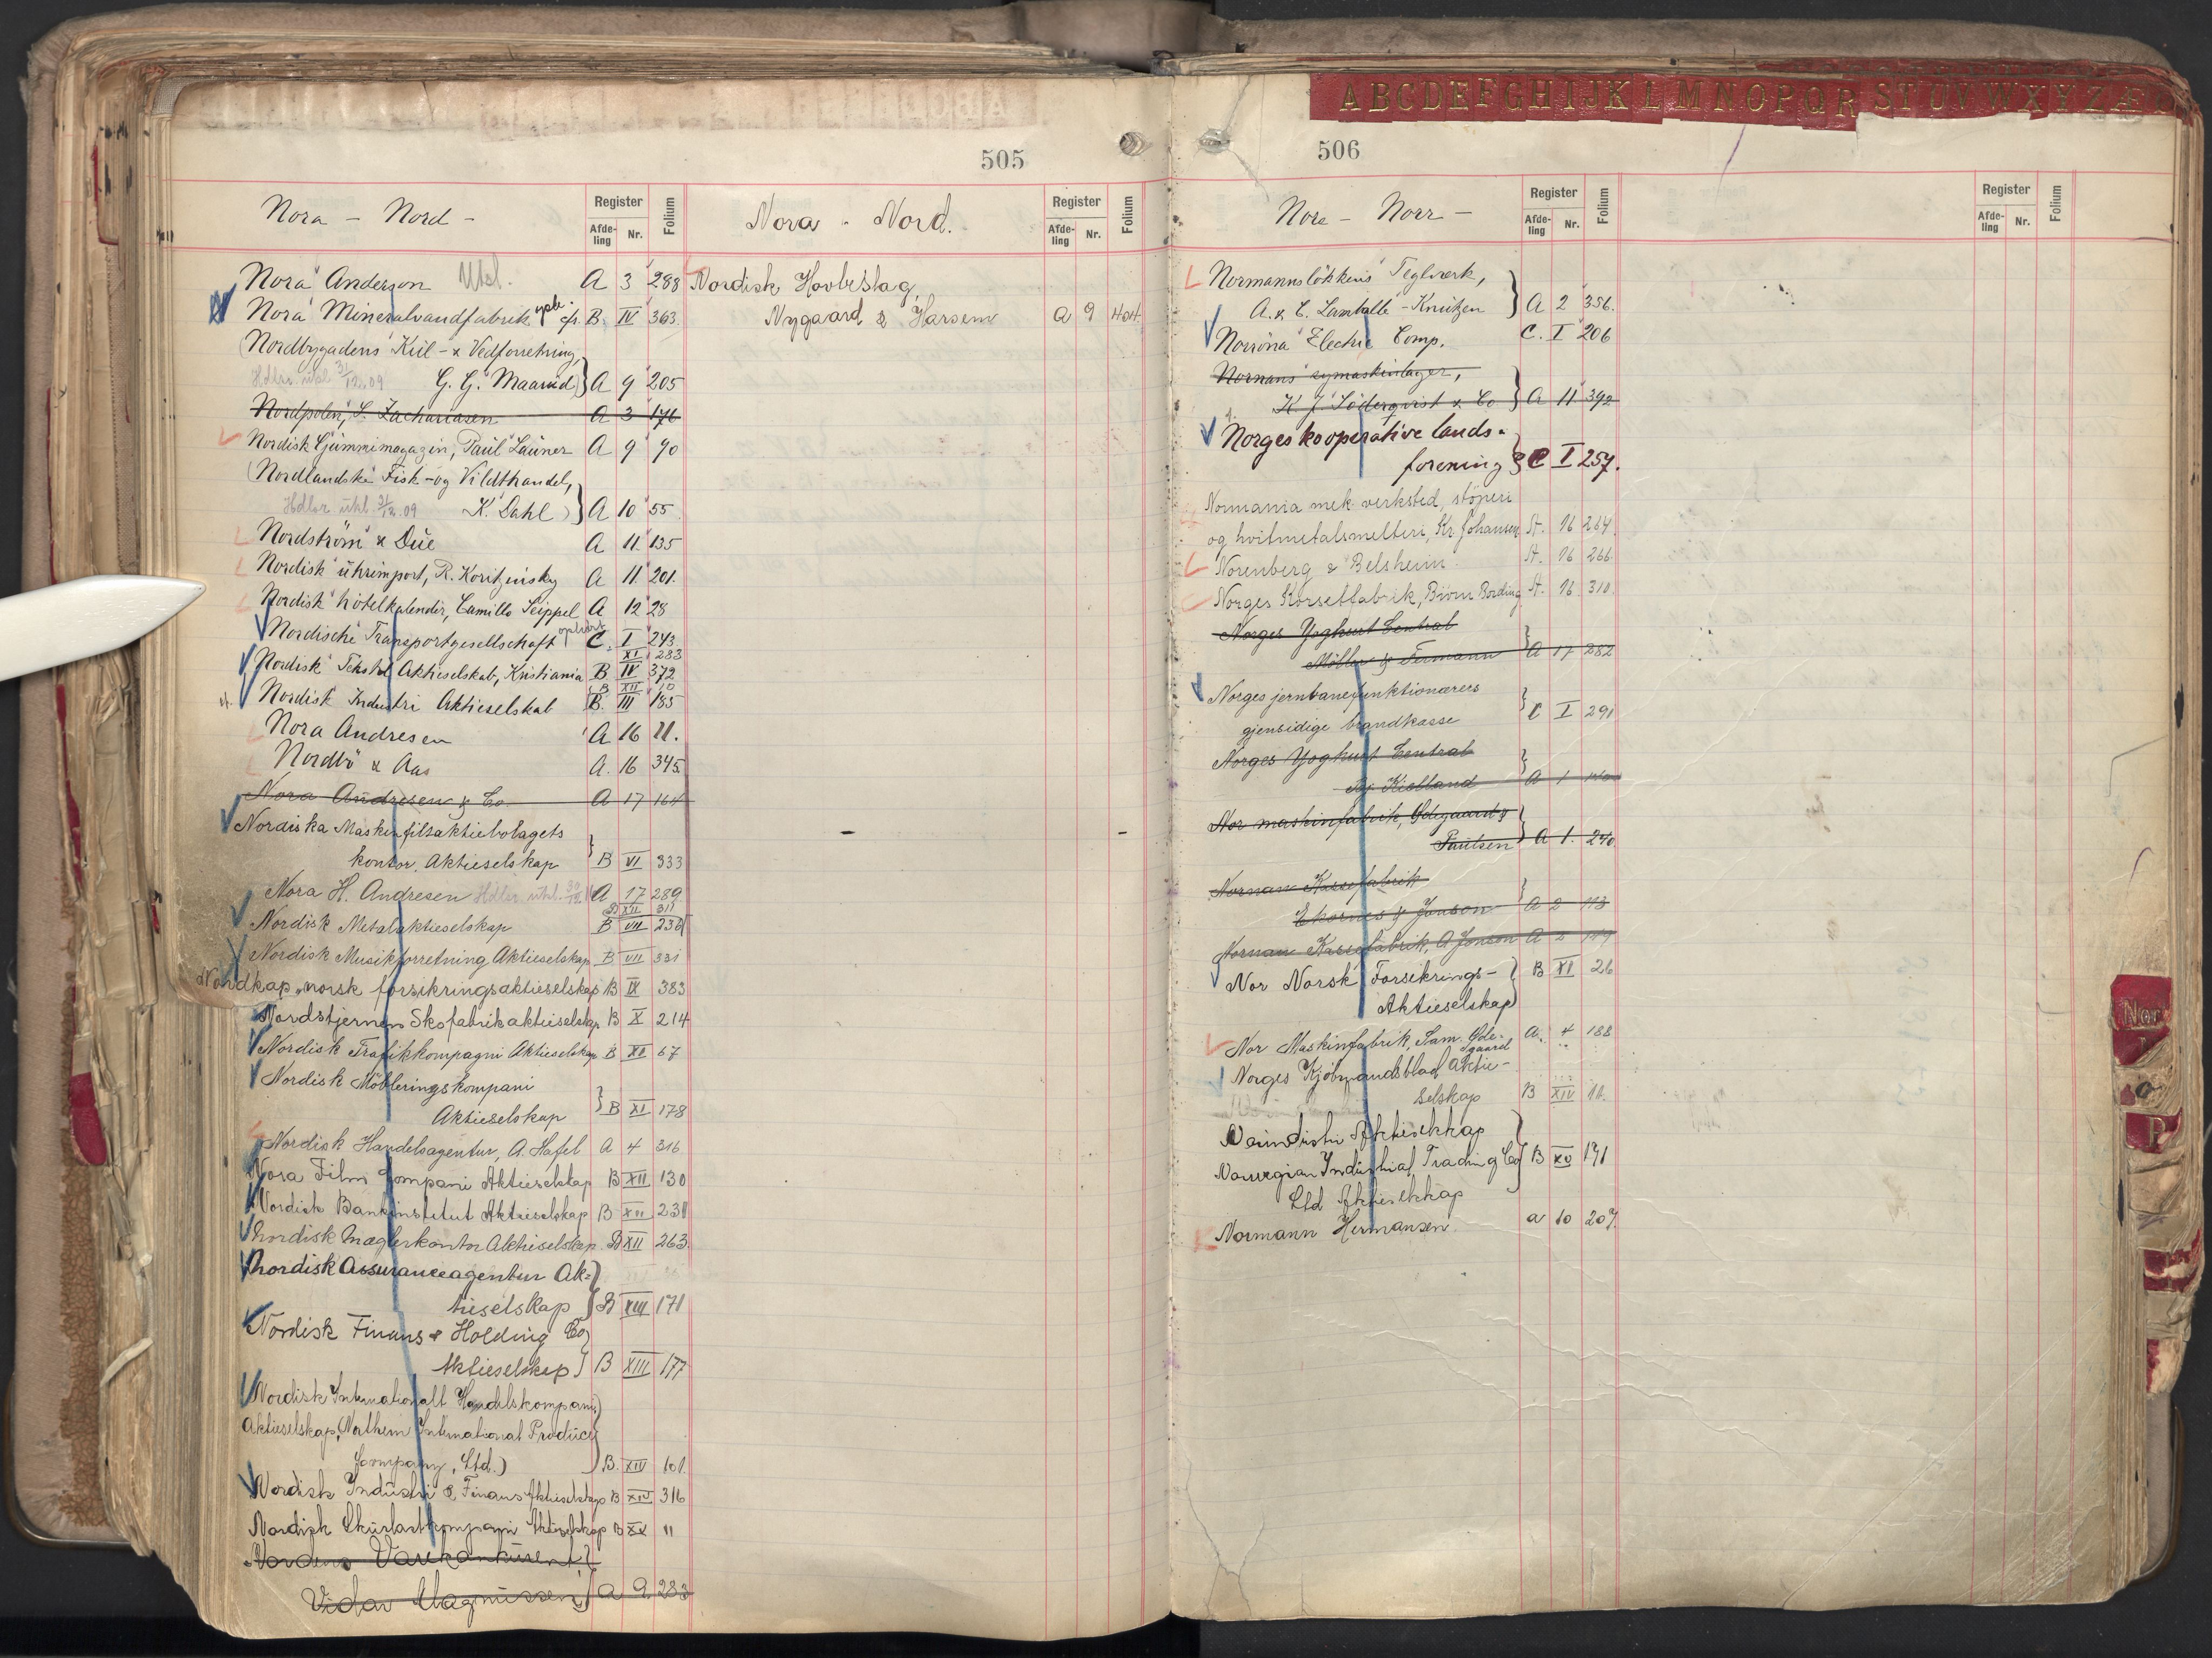 505
Nora - Nord -
Register
Afde-ling
Nr.
Folium
"Nora" Anderson Utsl. A 3 288
"Nora" Mineralvandfabrik B. IV 363.
(Nordbygadens Kul- & Vedforretning,
Hdlsr. utsl. 31/12.09 G. G. Maarud) A 9 205
Nordpolen, S. Zachariasen A 3 176
Nordisk Gummimagazin, Paul Launer A 9 90
(Nordlandske Fisk- og Vildthandel,
Hdlsr utsl. 31/12.09 K. Dahl) A 10 55
Nordström & Due A 11 135
Nordisk uhrimport, R. Koritzinsky A 11 201.
Nordisk hotelkalender, Camillo Seippel A 12 28
Nordische Transportgesellschaft opløst C. I 243
XI 283
Nordisk Tekstil Aktieselskab, Kristiania B IV 372
B XII 10
Nordisk Industri Aktieselskab B. III 185
Nora Andresen A 16 11.
Nordbö & Aas A. 16 345
Nora Andresen & Co. A 17 164
Nordiska Maskinfiltaktiebolagets
kontor, Aktieselskap B VI 333
Nora H. Andresen Hdlsr utsl. A 17 289
B XII 311
Nordisk Metalaktieselskap B VII 236
Nordisk Musikforretning Aktieselskap B VII 331
Nordkap, norsk forsikringsaktieselskap B IX 383
Nordstjernen Skofabrik aktieselskap B X 214
Nordisk Trafikkompagni Aktieselskap B XI 67
Nordisk Möbleringskompani
Aktieselskap B XI 178
Nordisk Handelsagentur, A. Hafel A 4 316
Nora Film Kompani Aktieselskap B XII 130
Nordisk Bankinstitut Aktieselskap B XII 231
Nordisk Mæglerkontor Aktieselskap B XII 263.
Nordisk Assuranceagentur Ak-
tieselskap B XIII 171
Nordisk Finans & Holding Co
Aktieselskap B XIII 177
Nordisk Internationalt Handelskompani
Aktieselskap, (Northern International Produce
Company, Ltd.) B. XIV 101.
Nordisk Industri & Finans Aktieselskap B XIV 316
Nordisk Skurlastkompani Aktieselskap B XX 11
Nordens Varekonkurent,
Vidar Magnussen A 9. 283
Nora - Nord.
Register
Afde-ling
Nr.
Folium
Nordisk Hovbeslag,
Nygaard & Harsem A 9 404
506
Nore - Norr -
Register
Afde-ling
Nr.
Folium
Register
Afde-ling
Nr.
Folium
Normannslökkens Teglværk,
A. & C. Lamballe-Knutzen A 2 356.
"Norröna" Electric Comp. C. I 206
Nornans symaskinlager,
K. J. Söderqvist & Co A 11. 392
Norges kooperative lands-
forening C I 257.
Normania mek. verksted, støperi
og hvitmetalsmelteri, Kr. Johansen A. 16 264.
Norenberg & Belsheim. A. 16 266
Norges Korsetfabrik, Bording A. 16 310.
Norges Yoghurt Central
A 17 282
Norges jernbanefunktionærers
gjensidige brandkasse C I 291
Norges Yoghurt Central
Kielland A 1
Nor maskinfabrik, Ødegaard &
Paulsen A 1. 240.
Nornan Kassefabrik
Ekornes & Jonson A 2 113
Nornan Kassefabrik, A Jonson A 2 149
Nor Norsk Forsikrings- B XI 26
Aktieselskap
Nor Maskinfabrik, Sam. Øde- A. 4 188
gaard
Norges Kjøbmandsblad Aktie-
selskap B XIV 16.
Aktieselskap
Norwegian Industrial Trading Co B XV 171
Ltd Aktieselskap
Normann Hermansen A 10 207.
A B C D E F G H I J K L M N O P Q R S T U V W X Y Z Æ
Nor
P